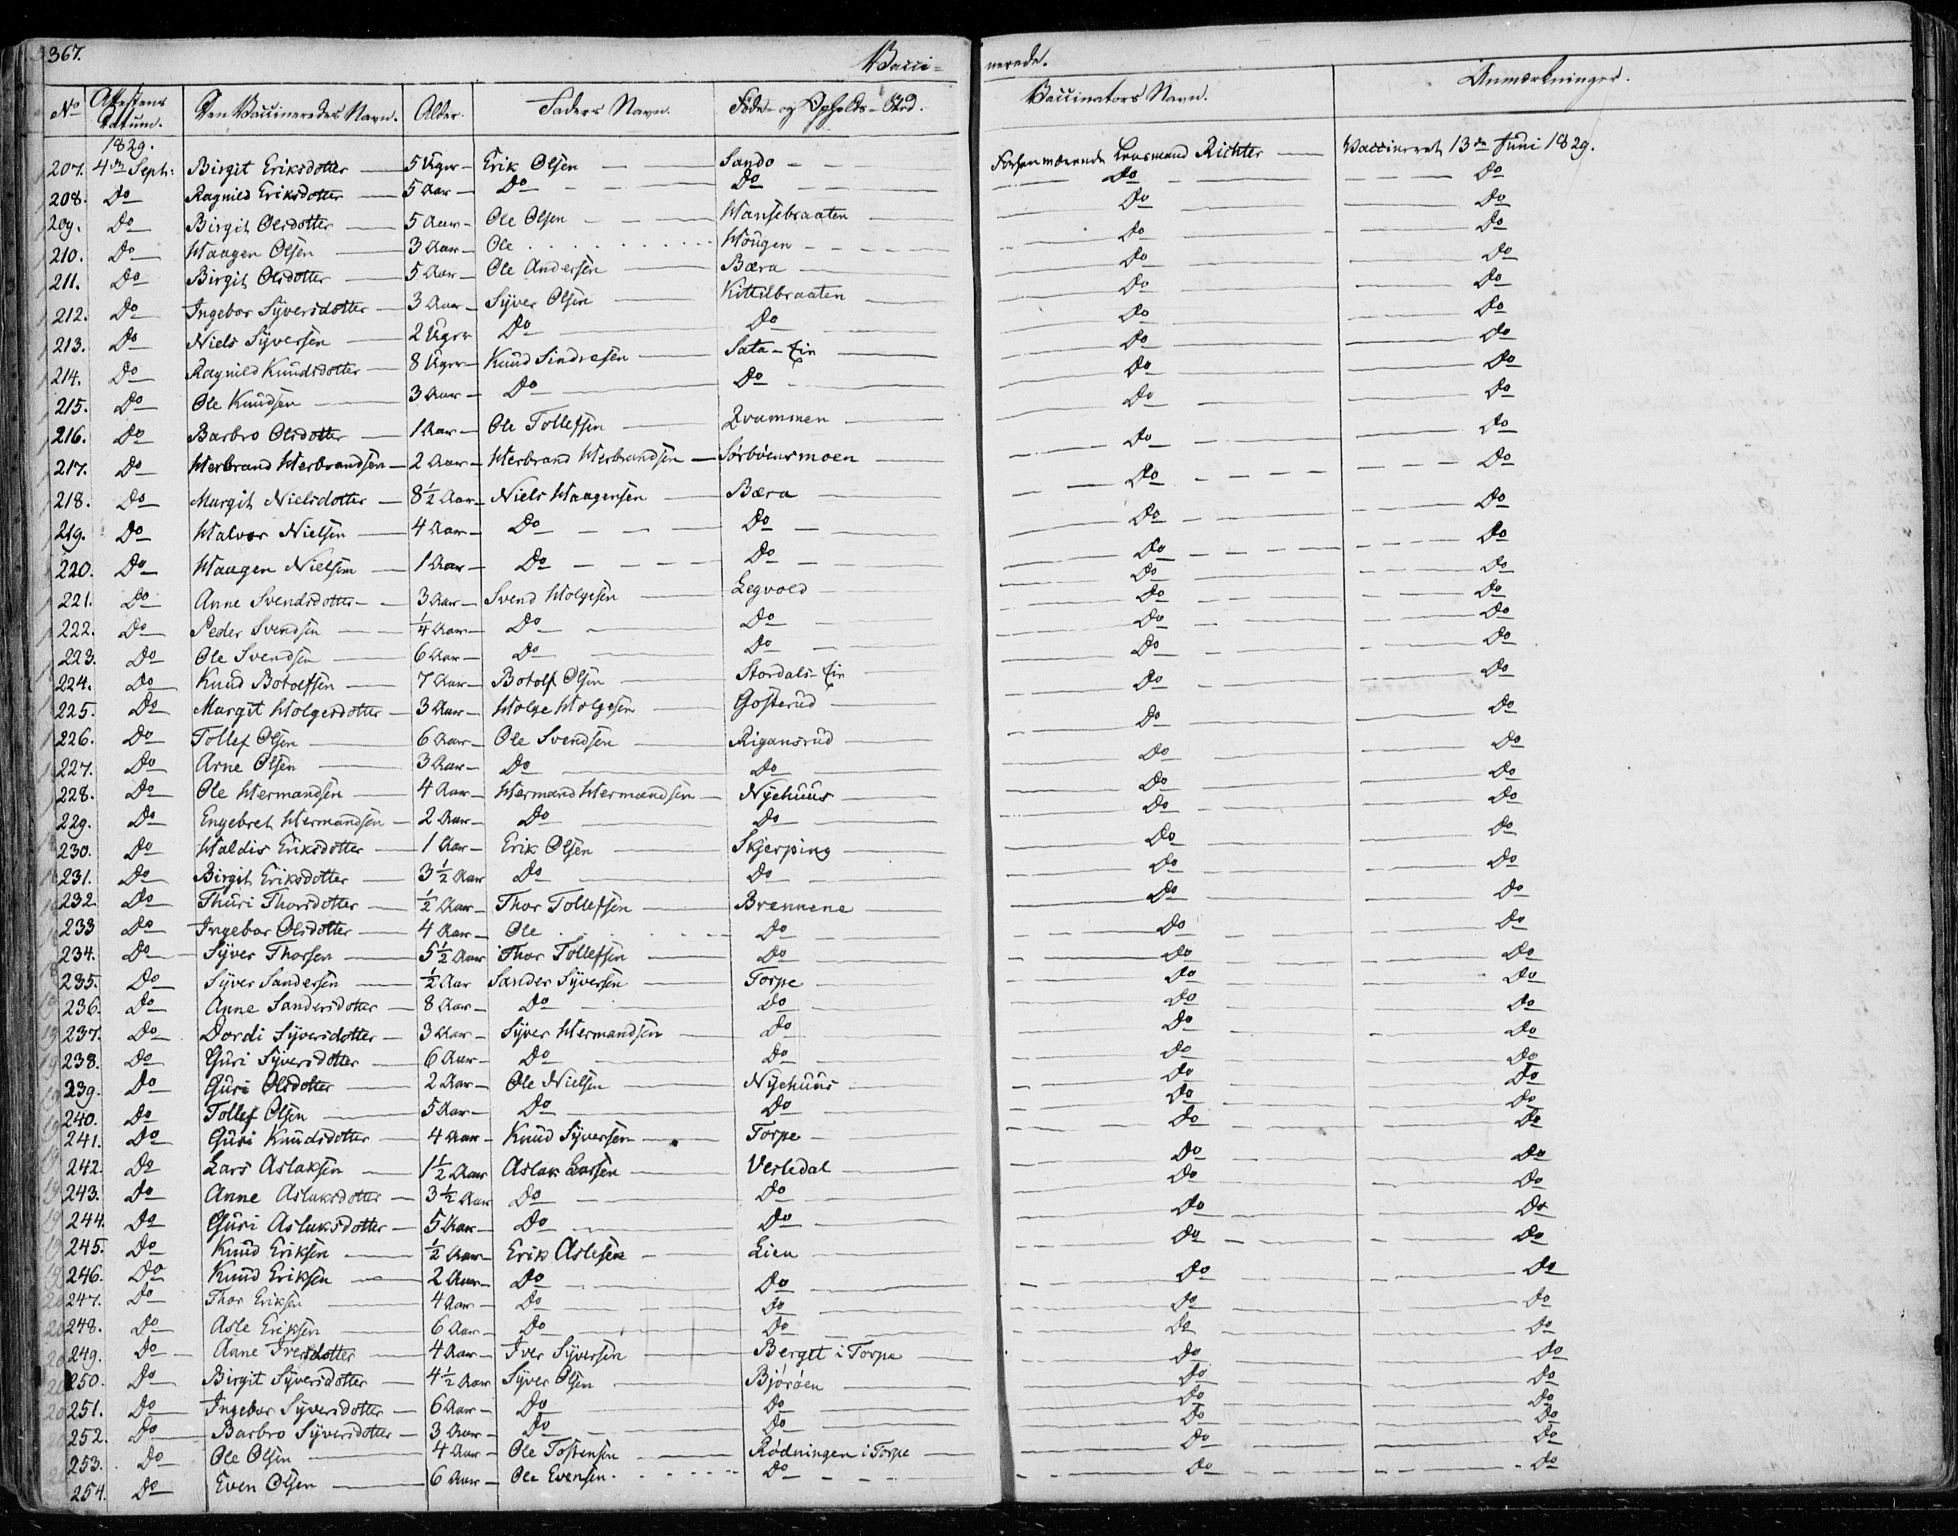 367. Vacci- nerede.
No Attestens Datum. Den Vaccineredes Navn. Alder. Faders Navn. Føde- og Opholds-Sted. Vaccinators Navn. Anmærkninger.
1829.
207. 4de Septr: Birgit Eriksdotter 5 Uger Erik Olsen Sando Forhenværende Lensmand Richter Vaccineret 13de Juni 1829.
208. Do Ragnild Eriksdotter 5 Aar Do Do Do Do
209. Do Birgit Olsdotter 5 Aar Ole Olsen Hansebraaten Do Do
210. Do Haagen Olsen 3 Aar Ole . . . . . . . Hougen Do Do
211. Do Birgit Olsdotter 5 Aar Ole Andersen Bæra Do Do
212. Do Ingebor Syversdotter 3 Aar Syver Olsen Kittilbraaten Do Do
213. Do Niels Syversen 2 Uger Do Do Do Do
214. Do Ragnild Knudsdotter 8 Uger Knud Sindresen Sata-Eie Do Do
215. Do Ole Knudsen 3 Aar Do Do Do Do
216. Do Barbro Olsdotter 1 Aar Ole Tollefsen Qvammen Do Do
217. Do Herbrand Herbrandsen 2 Aar Herbrand Herbrandsen Sørbøensmoen Do Do
218. Do Margit Nielsdotter 8½ Aar Niels Haagensen Bæra Do Do
219. Do Halvor Nielsen 4 Aar Do Do Do Do
220. Do Haagen Nielsen 1 Aar Do Do Do Do
221. Do Anne Svendsdotter 3 Aar Svend Holgesen Legvold Do Do
222. Do Peder Svendsen ¼ Aar Do Do Do Do
223. Do Ole Svendsen 6 Aar Do Do Do Do
224. Do Knud Botolfsen 7 Aar Botolf Olsen Stordals-Eie Do Do
225. Do Margit Holgersdotter 3 Aar Holge Holgesen Gosterud Do Do
226. Do Tollef Olsen 6 Aar Ole Svendsen Rigansrud Do Do
227. Do Arne Olsen 3 Aar Do Do Do Do
228. Do Ole Hermandsen 4 Aar Hermand Hermandsen Nyehuus Do Do
229. Do Engebret Hermandsen 2 Aar Do Do Do Do
230. Do Haldis Eriksdotter 1 Aar Erik Olsen Skjerping Do Do
231. Do Birgit Eriksdotter 3½ Aar Do Do Do Do
232. Do Thuri Thorsdotter ½ Aar Thor Tollefsen Brennene Do Do
233 Do Ingebor Olsdotter 4 Aar Ole . . . . Do Do Do
234. Do Syver Thorsen 5½ Aar Thor Tollefsen Do Do Do
235. Do Syver Sandersen ½ Aar Sander Syversen Torpe Do Do
236. Do Anne Sandersdotter 8 Aar Do Do Do Do
237. Do Dordi Syversdotter 3 Aar Syver Hermandsen Do Do Do
238. Do Guri Syversdotter 6 Aar Do Do Do Do
239. Do Guri Olsdotter 2 Aar Ole Nielsen Nyehuus Do Do
240. Do Tollef Olsen 5 Aar Do Do Do Do
241. Do Guri Knudsdotter 4 Aar Knud Syversen Torpe Do Do
242. Do Lars Aslaksen 1½ Aar Aslak Larsen Vesledal Do Do
243. Do Anne Aslaksdotter 3½ Aar Do Do Do Do
244. Do Guri Aslaksdotter 5 Aar Do Do Do Do
245. Do Knud Eriksen ½ Aar Erik Aslesen Lien Do Do
246. Do Knud Eriksen 2 Aar Do Do Do Do
247. Do Thor Eriksen 4 Aar Do Do Do Do
248. Do Asle Eriksen 6 Aar Do Do Do Do
249. Do Anne Iversdotter 4 Aar Iver Syversen Berget i Torpe Do Do
250. Do Birgit Syversdotter 4½ Aar Syver Olsen Bjørøen Do Do
251. Do Ingebor Syversdotter 6 Aar Do Do Do Do
252. Do Barbro Syversdotter 3 Aar Do Do Do Do
253. Do Ole Olsen 4 Aar Ole Tostensen Rødningen i Torpe Do Do
254. Do Even Olsen 6 Aar Ole Evensen Do Do Do